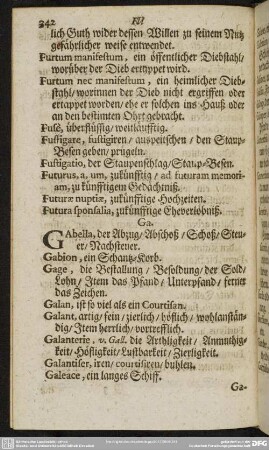 242
lich Guth wider dessen Willen zu seinem Nutz
gefährlicher weise entwendet.
Furtum manifestum, ein öffentlicher Diebstahl/
worüber der Dieb ertappet wird.
Furtum nec manifestum, ein heimlicher Dieb-
stahl/ worinnen der Dieb nicht ergriffen oder
ertappet worden/ ehe er solchen ins Hauß oder
an den bestimten Ohrt gebracht.
Fusè, überflüssig/ weitläufftig.
Fustigare, fustigiren/ auspeitschen/ den Staup-
Besen geben/ prügeln.
Fustigatio, der Staupenschlag/ Staup-Besen.
Futurus, a, um, zukünfftig/ ad futuram memori-
am, zu künfftigem Gedächtniß.
Futuræ nuptiæ, zukünfftige Hochzeiten.
Futura sponsalia, zukünfftige Eheverlöbniß.
Ga.
GAbella, der Abzug/ Abschoß/ Schoß/ Steu-
er/ Nachsteuer.
Gabion, ein Schantz-Korb.
Gage, die Bestallung/ Besoldung/ der Sold/
Lohn/ Item das Pfand/ Unterpfand/ ferner
das Zeichen.
Galan, ist so viel als ein Courtisan.
Galant, artig/ fein/ zierlich/ höflich/ wohlanstän-
dig/ Item herrlich/ vortrefflich.
Galanterie, v. Gall. die Artligkeit/ Anmuthig-
keit/ Höfligkeit/ Lustbarkeit/ Zierligkeit.
Galantiser, iren/ courtisiren/ buhlen.
Galeace, ein langes Schiff.
Ga-